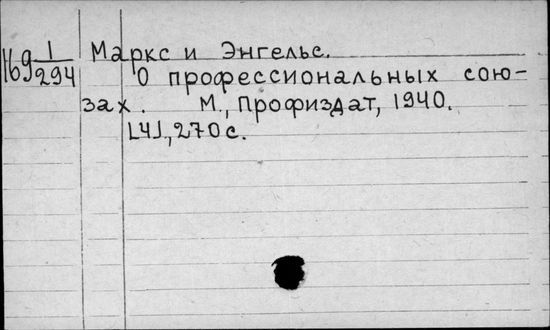 169 1/294 Маркс и Энгельс.
О профессиональных сою-
зах. М., Профиздат, 1940.
[4], 270 с.